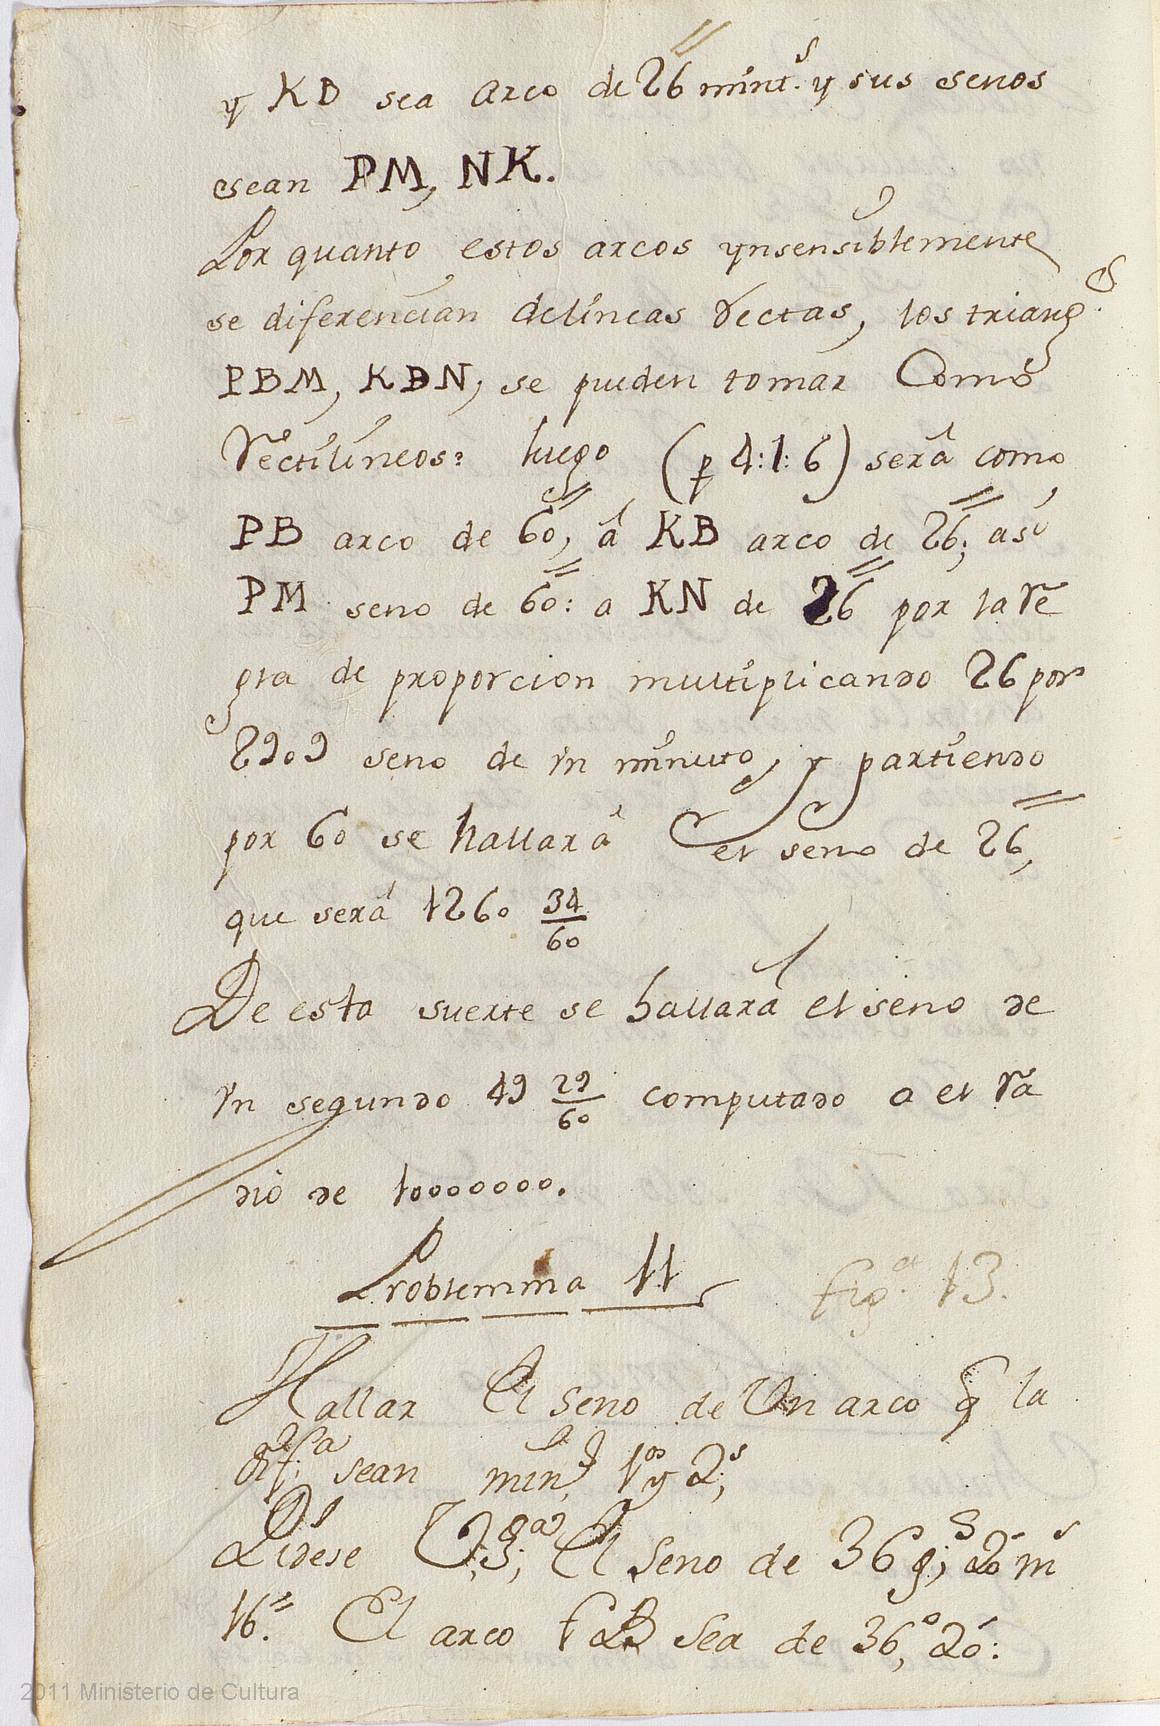 y KB sea arco de 26'' mints. y sus senos
sean PM, NK.
Por quanto estos arcos ynsensiblemente
se diferencian delineas rectas, los triangs.
PBM, KBN, se pueden tomar Como
rectilineos: luego (p 4:1:6) será como
PB arco de 60'', á KB arco de 26''; así
PM seno de 60'': a KN de 26'' por la re
gla de proporcion multiplicando 26 por
2909 seno de vn minuto, y partiendo
por 60 se hallará el seno de 26'',
que será 1260 34/60
De esta suerte se hallará el seno de
vn segundo 49 29/60 computado a el ra
dio de 10000000.
Problemma 11 figa. 13.
Hallar El seno de Vn arco q la
sean min, 1os y 2s;
Pidese El seno de 36 gs; 20 ms
16''. El arco f B sea de 36°, 20':
2011 Ministerio de Cultura